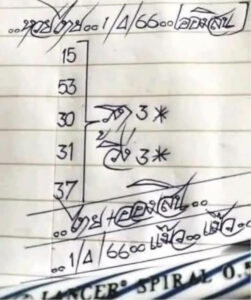 ..หวยไทย..1/4/66..ออมสิน
15
53
30 วิ่ง 3*
31 วิ่ง 3*
37
..ไทย+ออมสิน..
..1/4/66..แป๊ว..แป๊ว..
LANCER SPIRAL 0.